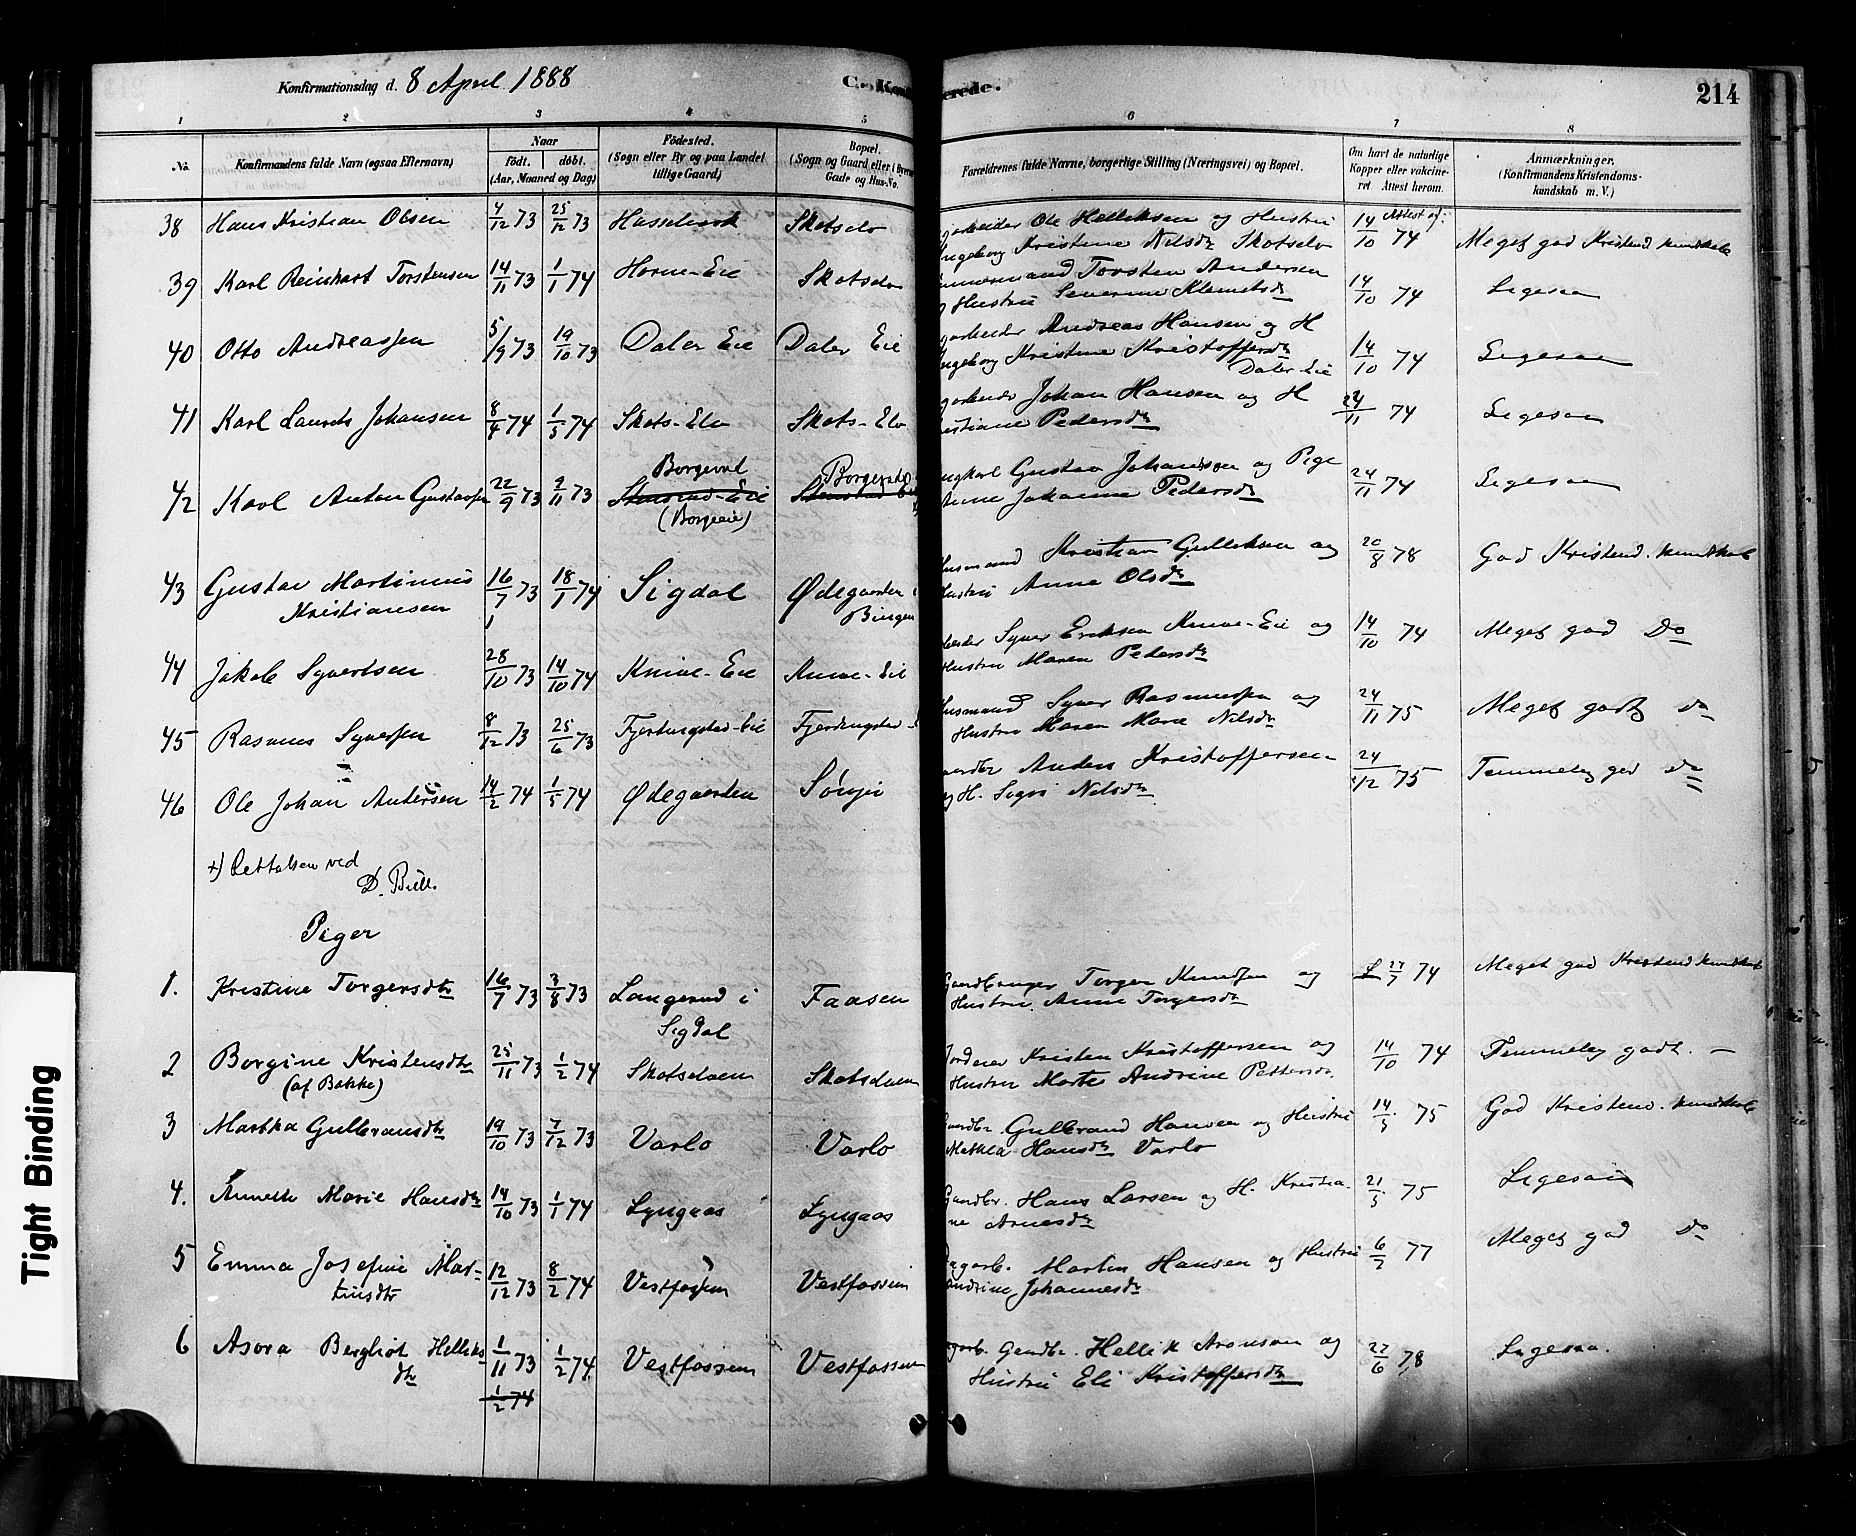 Konfirmationsdag d. 8 April 1888
C. Kon
erede.
214
1 2 3 4 5 6 7 8
No. Konfirmandens fulde Navn (ogsaa Efternavn) Naar födt. döbt. (Aar, Maaned og Dag) Födested. (Sogn eller By og paa Landet tillige Gaard) Bopæl. (Sogn og Gaard eller i Byerne Gade og Hus-No. Forældrenes fulde Navne, borgerlige Stilling (Næringsvei) og Bopæl. Om havt de naturlige Kopper eller vakcineret. Attest herom. Anmærkninger. (Konfirmandens Kristendomskundskab m. V.)
38 Hans Kristian Olsen 4/12 73 25/12 73 Hasselverk Skotselv
arbeider Ole Helliksen og Hustru
Ingeborg Kristine Nilsdr Skotselv 14/10 74 Meget god Kristend. kundskab
39 Karl Reinhart Torstensen 14/11 73 1/1 74 Horne-Eie Skotselv
Torsten Andersen
og Hustru Severine Klemetsdr 14/10 74 Ligesaa
40 Otto Andreassen 5/9 73 19/10 73 Daler Eie Daler Eie
arbeider Andreas Hansen og H
Ingeborg Kristine Kristoffersdr
Daler Eie 14/10 74 Ligesaa
41 Karl Laurits Johansen 8/4 74 1/5 74 Skots-Elv Skots-Elv
Johan Hansen og H
Pedersdr 24/11 74 Ligesaa
42 Karl Anton Gustavsen 22/9 73 2/11 73 (Borgeeie)
ungkarl Gustav Johansen og Pige
Anne Johanne Pedersdr 24/11 74 Ligesaa
43 Gustav Martinius
Kristiansen 16/7 73 18/1 74 Sigdal Ødegaarden i
Bingen
Husmand Kristian Gulliksen og
Hustru Anne Olsdr 20/8 78 God Kristend. kundskab
44 Jakob Syvertsen 28/10 73 14/10 74 Knive-Eie Knive-Eie
arbeider Syver Eriksen Knive-Eie og
Hustru Maren Pedersdr 14/10 74 Meget god Do
45 Rasmus Syversen 8/12 73 25/6 73 Fjerdingstad-Eie Fjerdingstad-
Husmand Syver Rasmussen og
Hustru Maren Marie Nilsdr 24/11 75 Meget godt Do
46 Ole Johan Andersen 14/2 74 1/5 74 Ødegaarden
Gaardbr Anders Kristoffersen
og H. Sigri Nilsdr 24/12 75 Temmelig god Do
+) Rettelsen ved
D. Bull.
Piger
1. Kristine Torgersdtr 16/7 73 3/8 73 Langerud i
Sigdal Faasen
Gaardbruger Torger Knudsen og
Hustru Anne Torgersdr 27/7 74 Meget god Kristend kundskab
2 Borgine Kristensdtr
(af Bakke) 25/11 73 1/2 74 Skotselven Skotselven
Kristen Kristoffersen og
Hustru Marte Andrine Pettersdr. 14/10 74 Temmelig godt. —
3 Martha Gulbransdtr 19/10 73 7/12 73 Varlo Varlo
Gaardbr. Gulbrand Hansen og Hustru
Mathea Hansdr Varlo 14/5 75 God Kristend. kundskab
4. Annette Marie Hansdtr 14/10 73 1/1 74 Lyngaas Lyngaas
Gaardbr. Hans Larsen og H. Kristia-
ne Arnesdr 21/5 75 Ligesaa
5 Emma Josefine Mar-
tinsdtr 12/12 73 8/2 74 Vestfossen Vestfossen
Dagarb. Martin Hansen og Hustru
Andrine Johannesdr 6/2 77 Meget god Do
6 Asora Bergliot Helliks
dtr 1/11 73 1/2 74 Vestfossen Vestfossen
Dagarb. Gaardbr. Hellik Aronsen og
Hustru Eli Kristoffersdr 27/6 78 Ligesaa.
1/2 74
Tight Binding